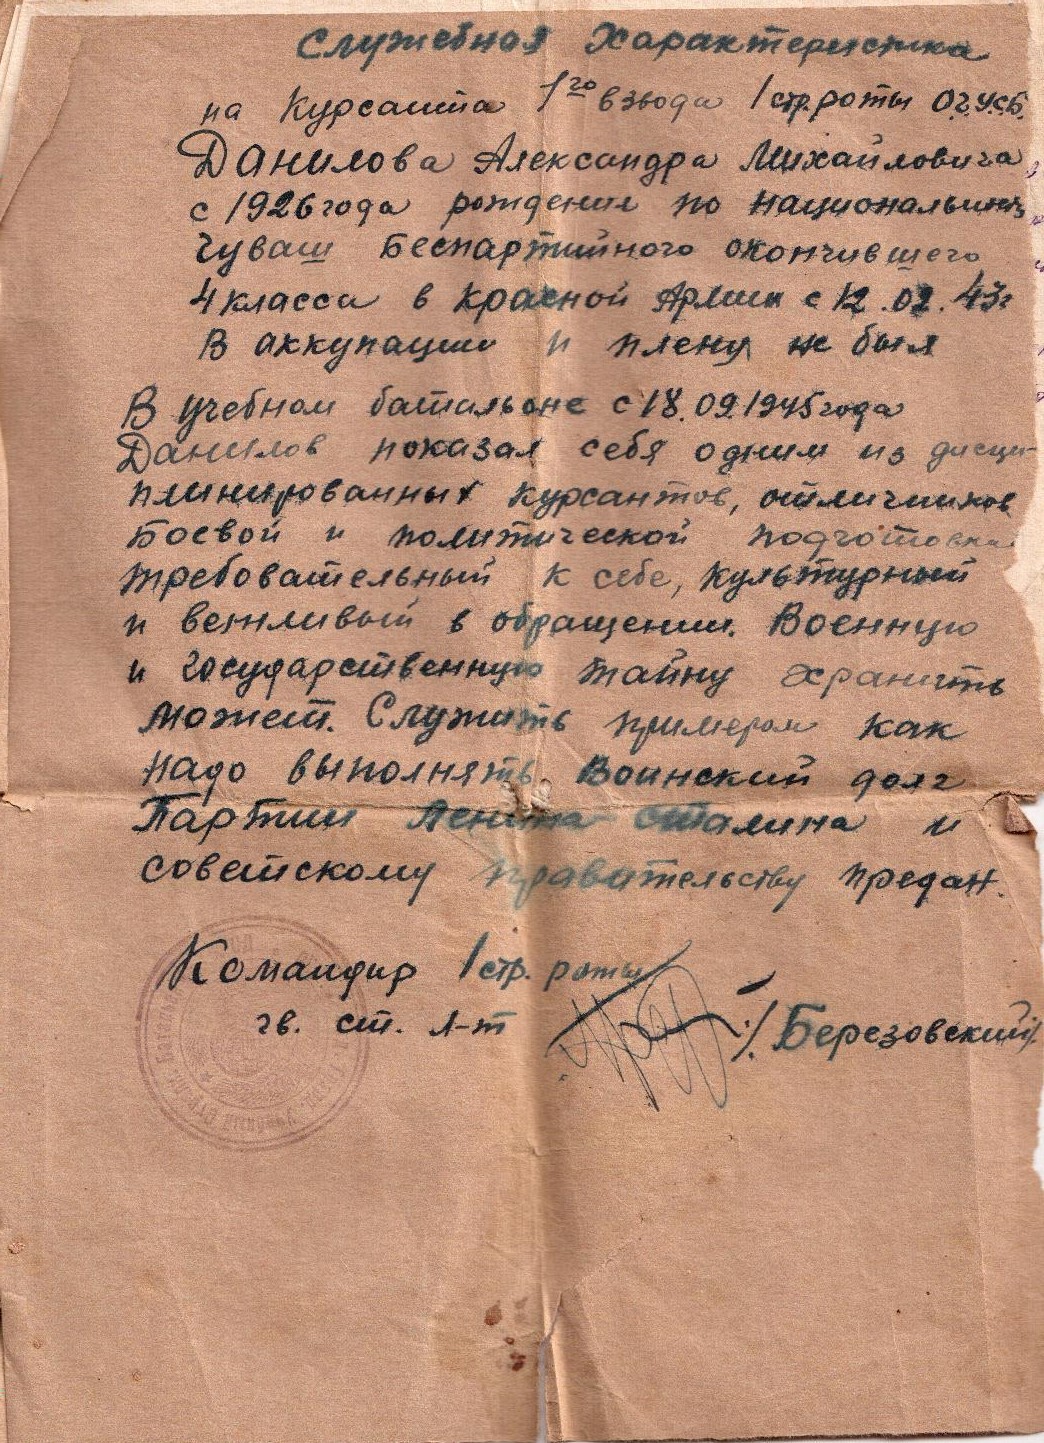 Служебная Характеристика
на Курсанта 1го взвода 1 стр. роты О.г.У.С.Б.
Данилова Александра Михайловича
с 1926 года рождения по национальность
чуваш Беспартийного окончившего
4 класса в красной Армии с 12.02.43г
В аккупации и плену не был
В учебном батальоне с 18.09.1945 года
Данилов показал себя одним из дисци-
плинированных курсантов, отличников
Боевой и политической подготовки
требовательный к себе, культурный
и вежливый в обращении. Военную
и государственную тайну хранить
может. Служить примером как
надо выполнять Воинский долг
Партии Ленина Сталина и
советскому правительству предан.
Командир 1 стр. роты
гв. ст. л-т /Березовский/